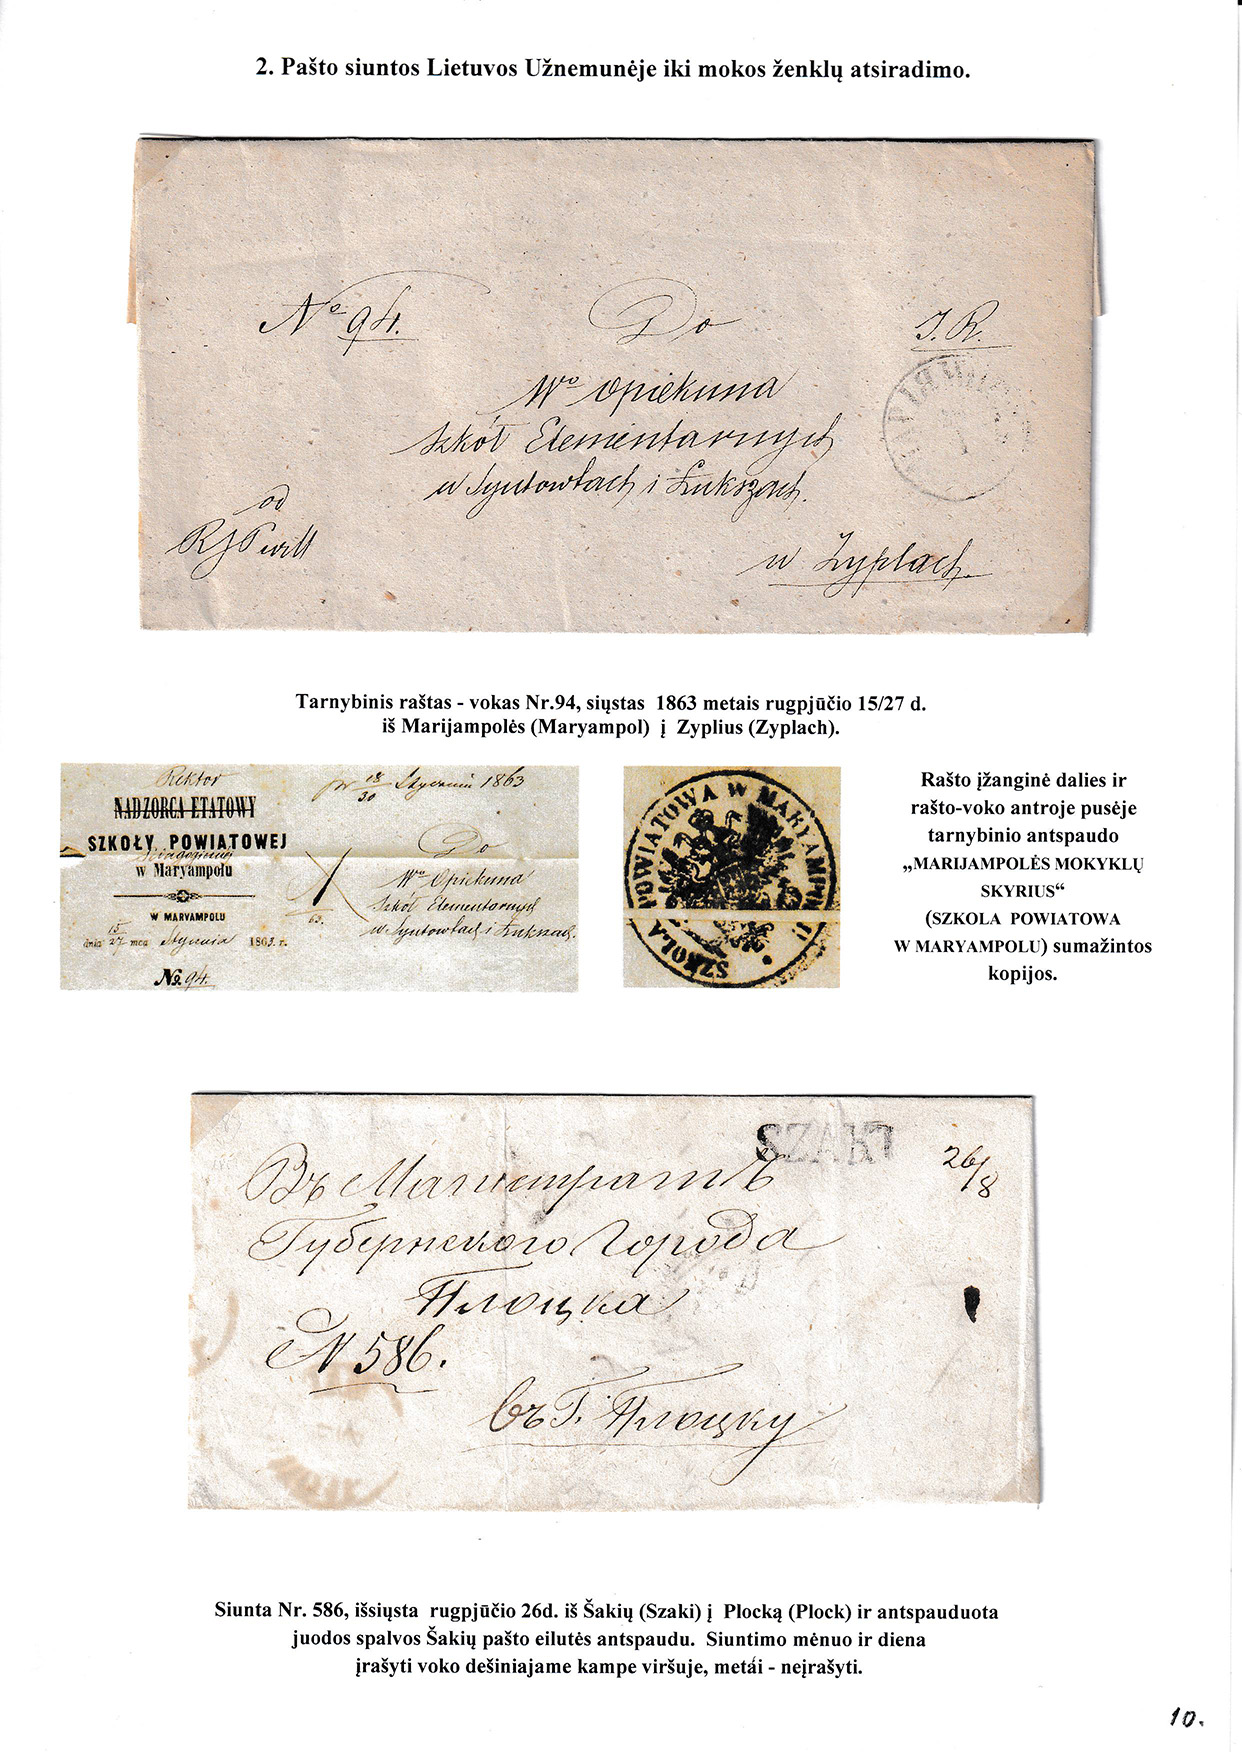 2. Pašto siuntos Lietuvos Užnemunėje iki mokos ženklų atsiradimo.
No 94.
Do
J. R.
Wo Opiekuna
Szkół Elementarnych
w Syntowtach i Łukszach.
od
w Zyplach.
Tarnybinis raštas - vokas Nr.94, siųstas 1863 metais rugpjūčio 15/27 d.
iš Marijampolės (Maryampol) į Zyplius (Zyplach).
Rektor
NADZORCA ETATOWY
SZKOŁY POWIATOWEJ
w Maryampolu
W MARYAMPOLU
dnia 15/27 mca Stycznia 1863. r.
No. 94.
18/30 Stycznia 1863
Do
Wo Opiekuna
Szkół Elementarnych
w Syntowtach i Łukszach.
1
63.
SZKOLA POWIATOWA W MARYAMPOLU
Rašto įžanginė dalies ir
rašto-voko antroje pusėje
tarnybinio antspaudo
„MARIJAMPOLĖS MOKYKLŲ
SKYRIUS“
(SZKOLA POWIATOWA
W MARYAMPOLU) sumažintos
kopijos.
SZAKI
26/8
Въ Магистратъ
Губернского Города
Плоцка
N 586.
въ Г. Плоцку
Siunta Nr. 586, išsiųsta rugpjūčio 26d. iš Šakių (Szaki) į Plocką (Plock) ir antspauduota
juodos spalvos Šakių pašto eilutės antspaudu. Siuntimo mėnuo ir diena
įrašyti voko dešiniajame kampe viršuje, metái - neįrašyti.
10.